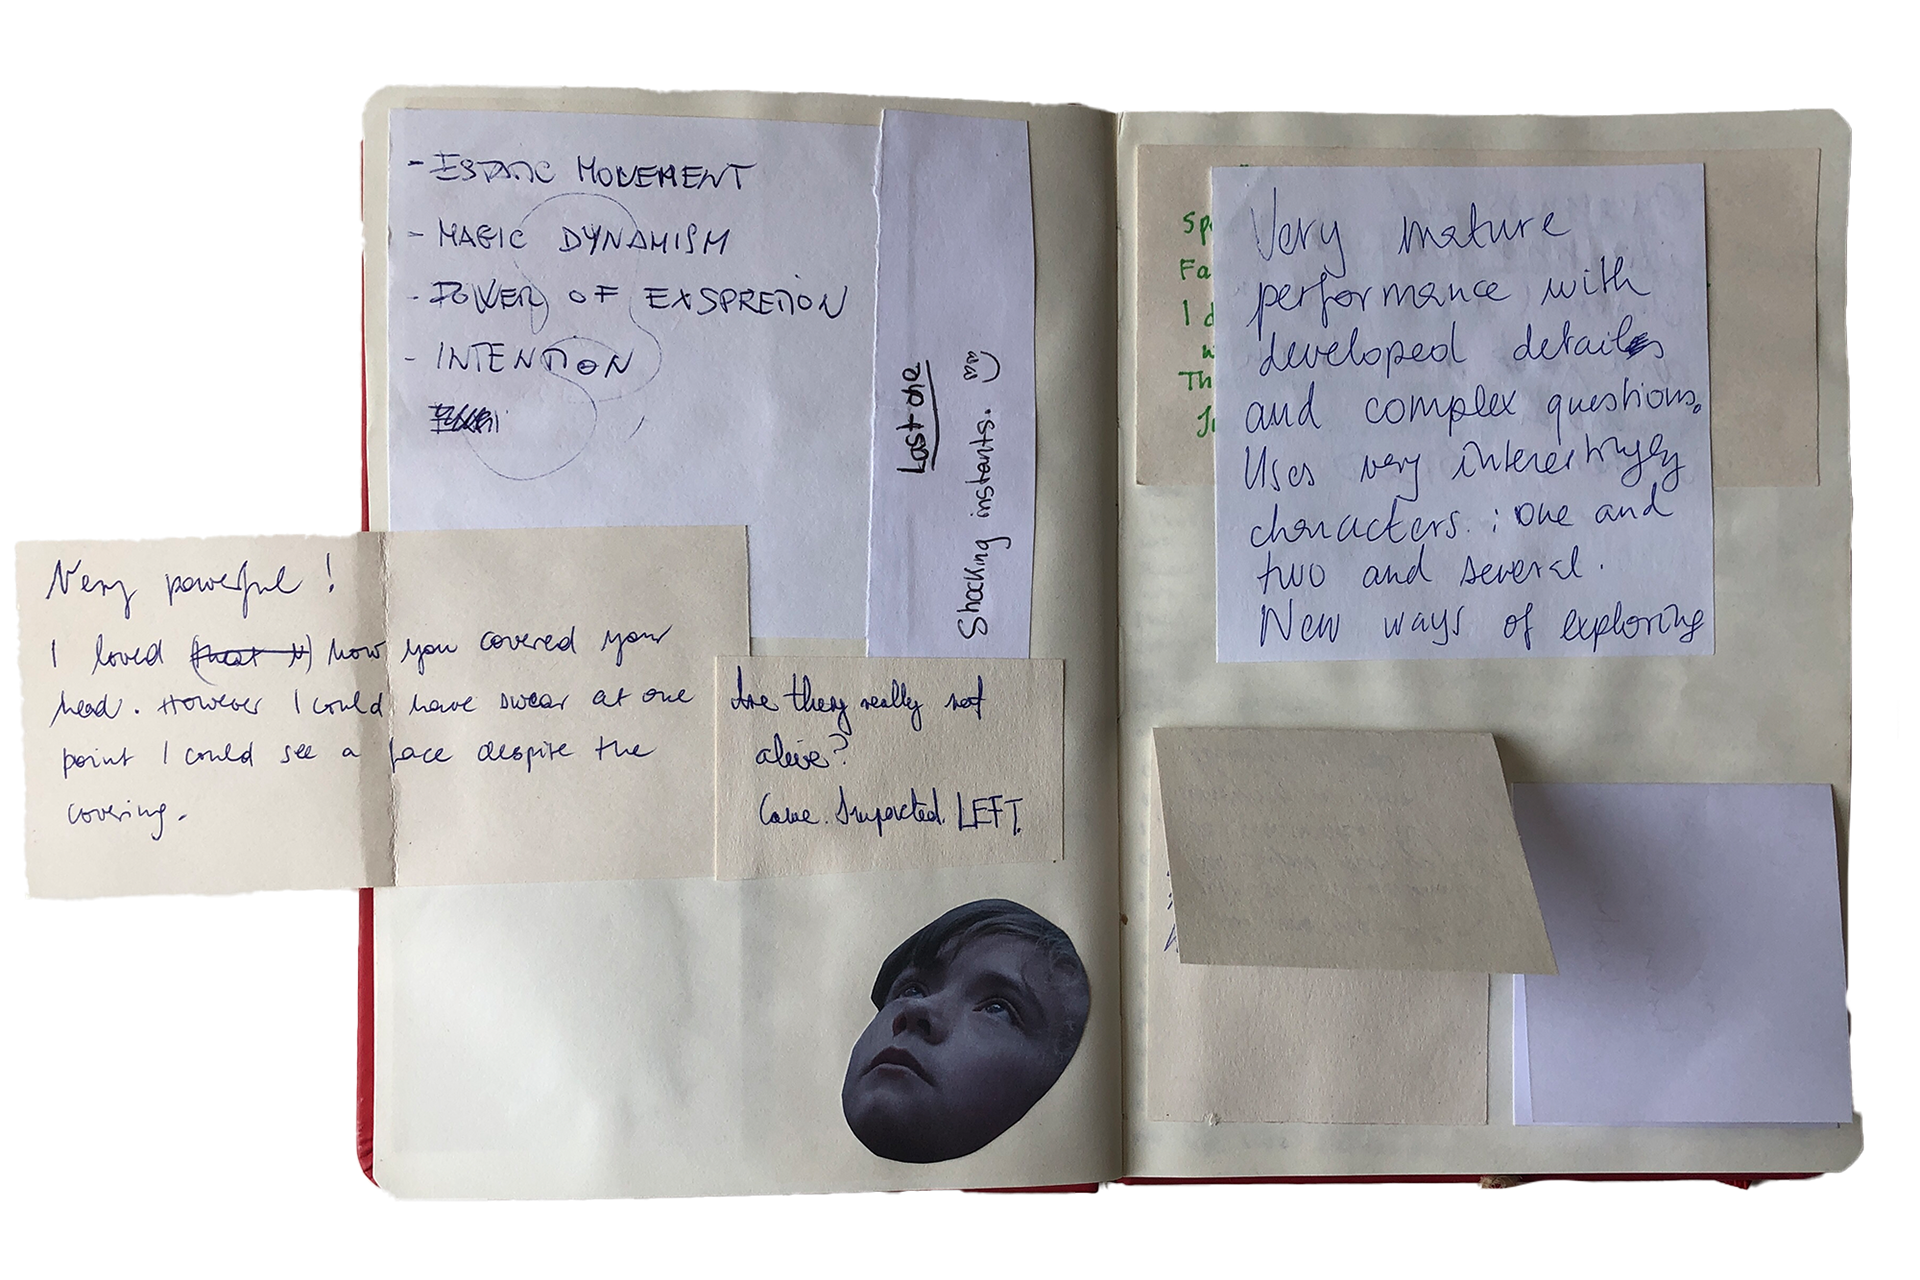 - ESTATIC MOVEMENT
- MAGIC DYNAMISM
- POWER OF EXSPRETION
- INTENTION
Last one
Shocking instants.
Very powerful !
I loved (that it) how you covered your
head. However I could have swear at one
point I could see a face despite the
covering.
Are they really not
alive?
Came. Impacted. LEFT.
Sp
Fa
I d
w
Th
Very mature
performance with
developed details
and complex questions.
Uses very interestingly
characters. : one and
two and several.
New ways of exploring